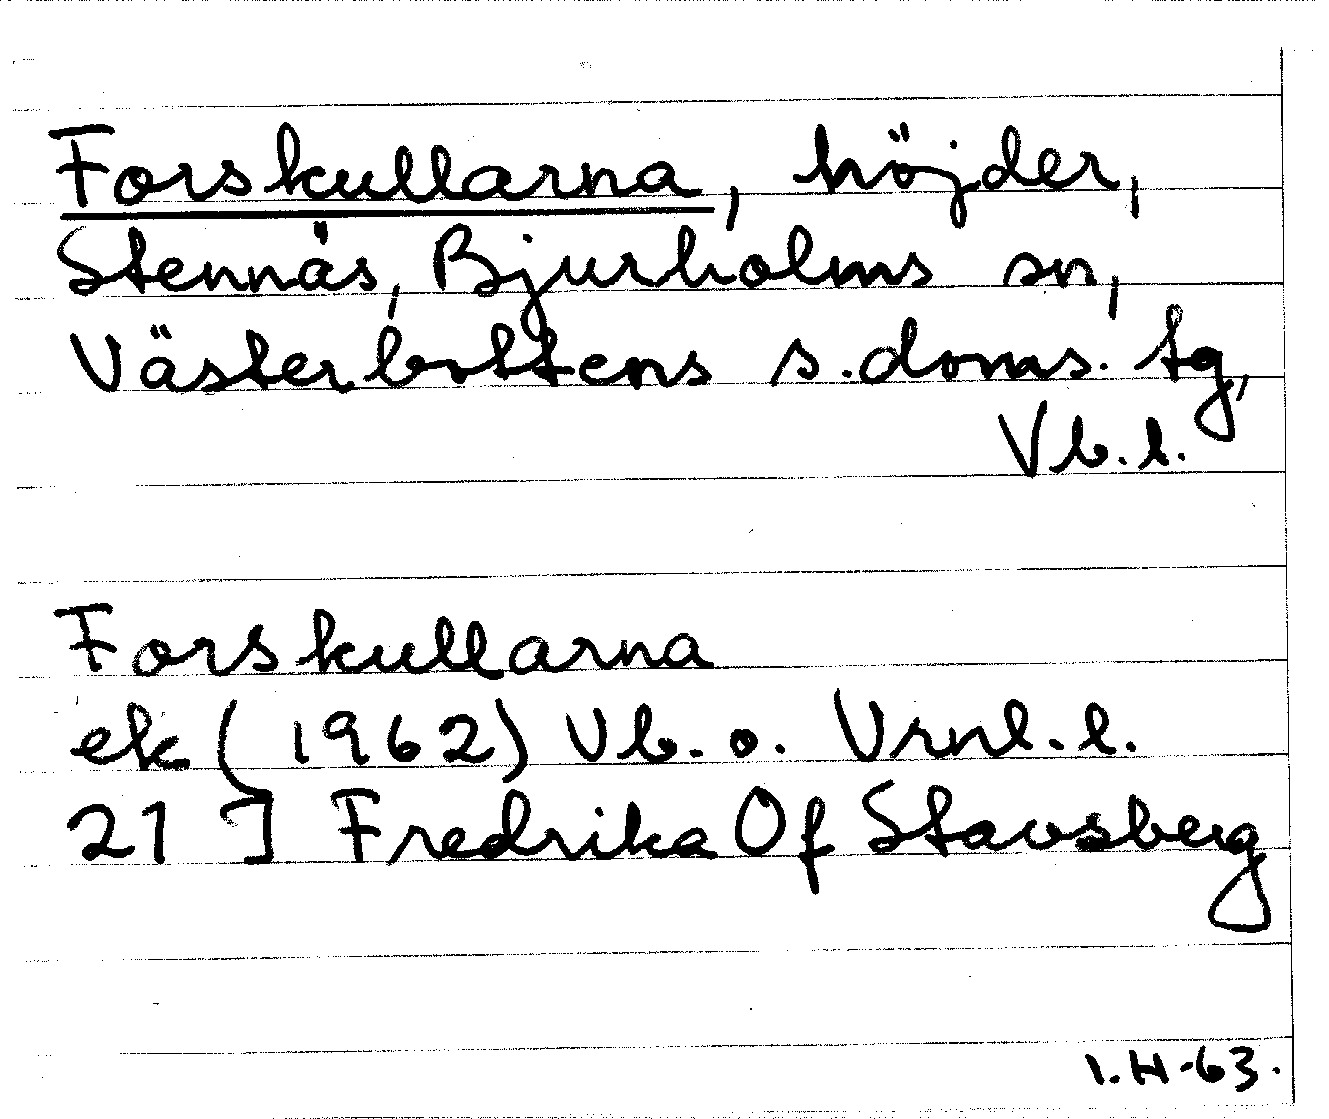 Forskullarna, höjder,
Stennäs, Bjurholms sn,
Västerbottens s. doms. tg,
Vb. l.
Forskullarna
ek (1962) Vb. o. Vrnl. l.
21 J Fredrika Of Stavsberg
I.H-63.